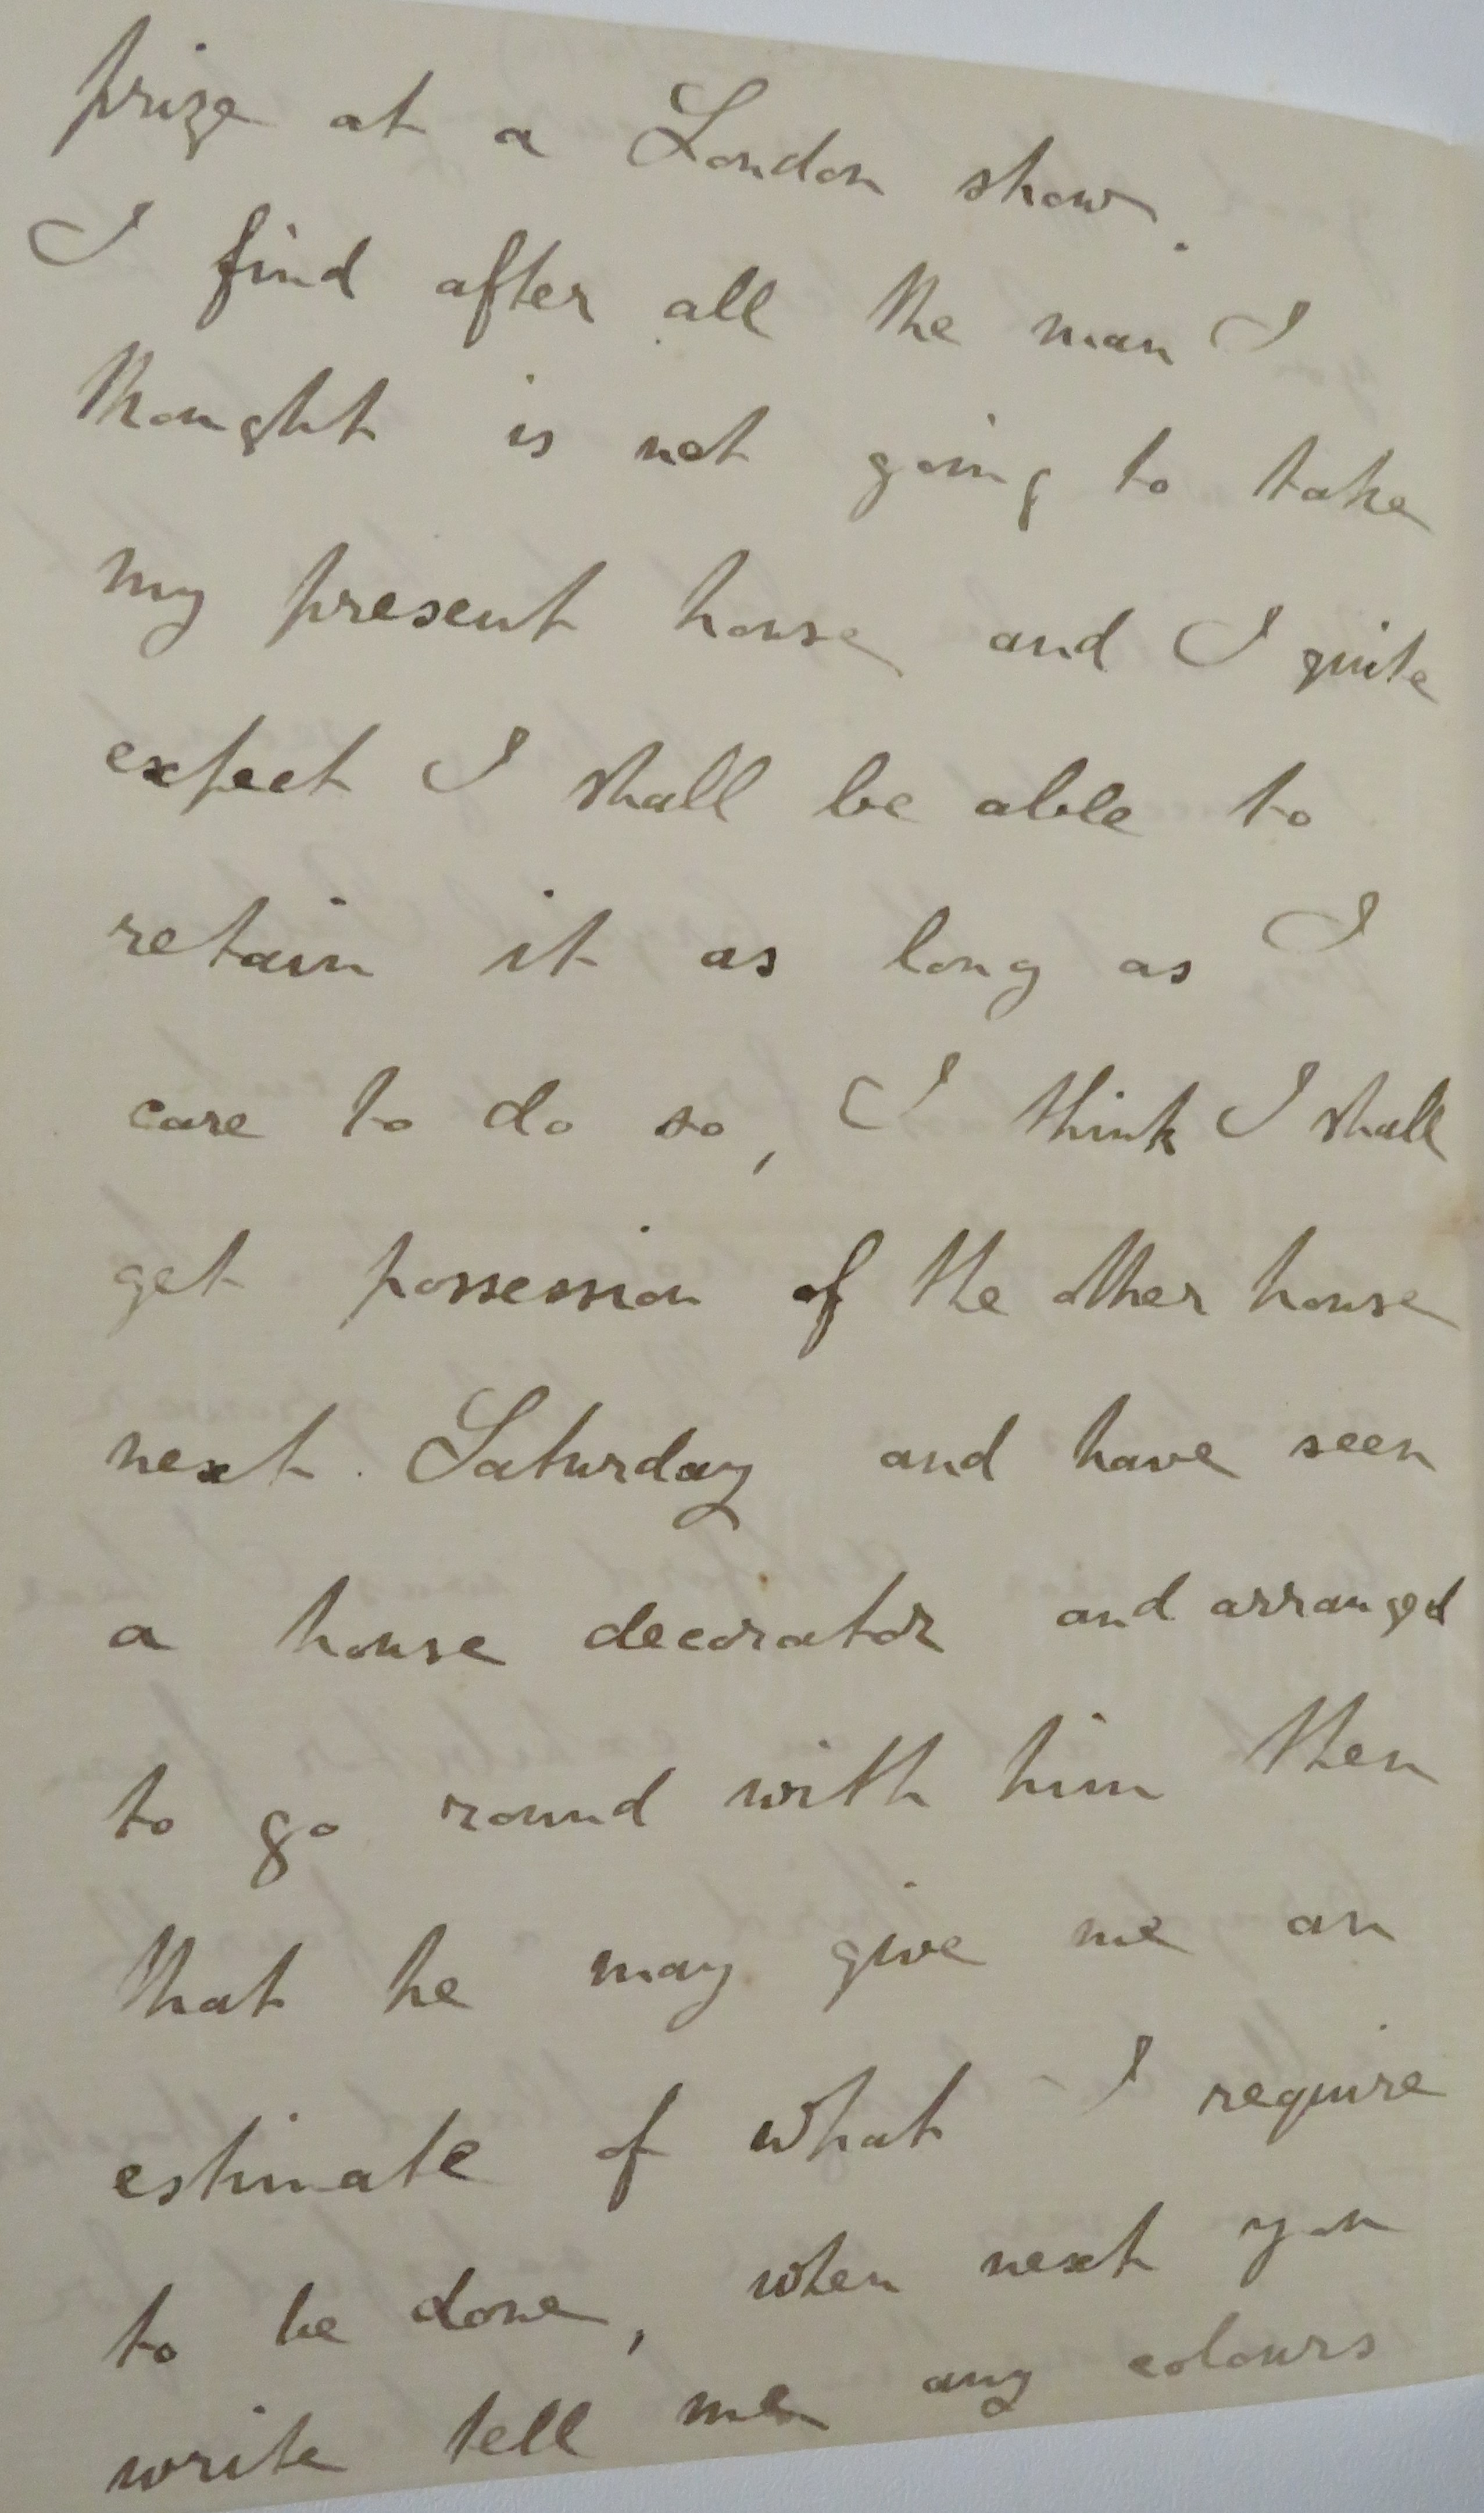 prize at a London show.
I find after all the man I
thought is not going to take
my present house and I quite
expect I shall be able to
retain it as long as I
care to do so, I think I shall
get possession of the other house
next Saturday and have seen
a house decorator and arranged
to go round with him then
that he may give me an
estimate of what I require
to be done, when next you
write tell me any colours